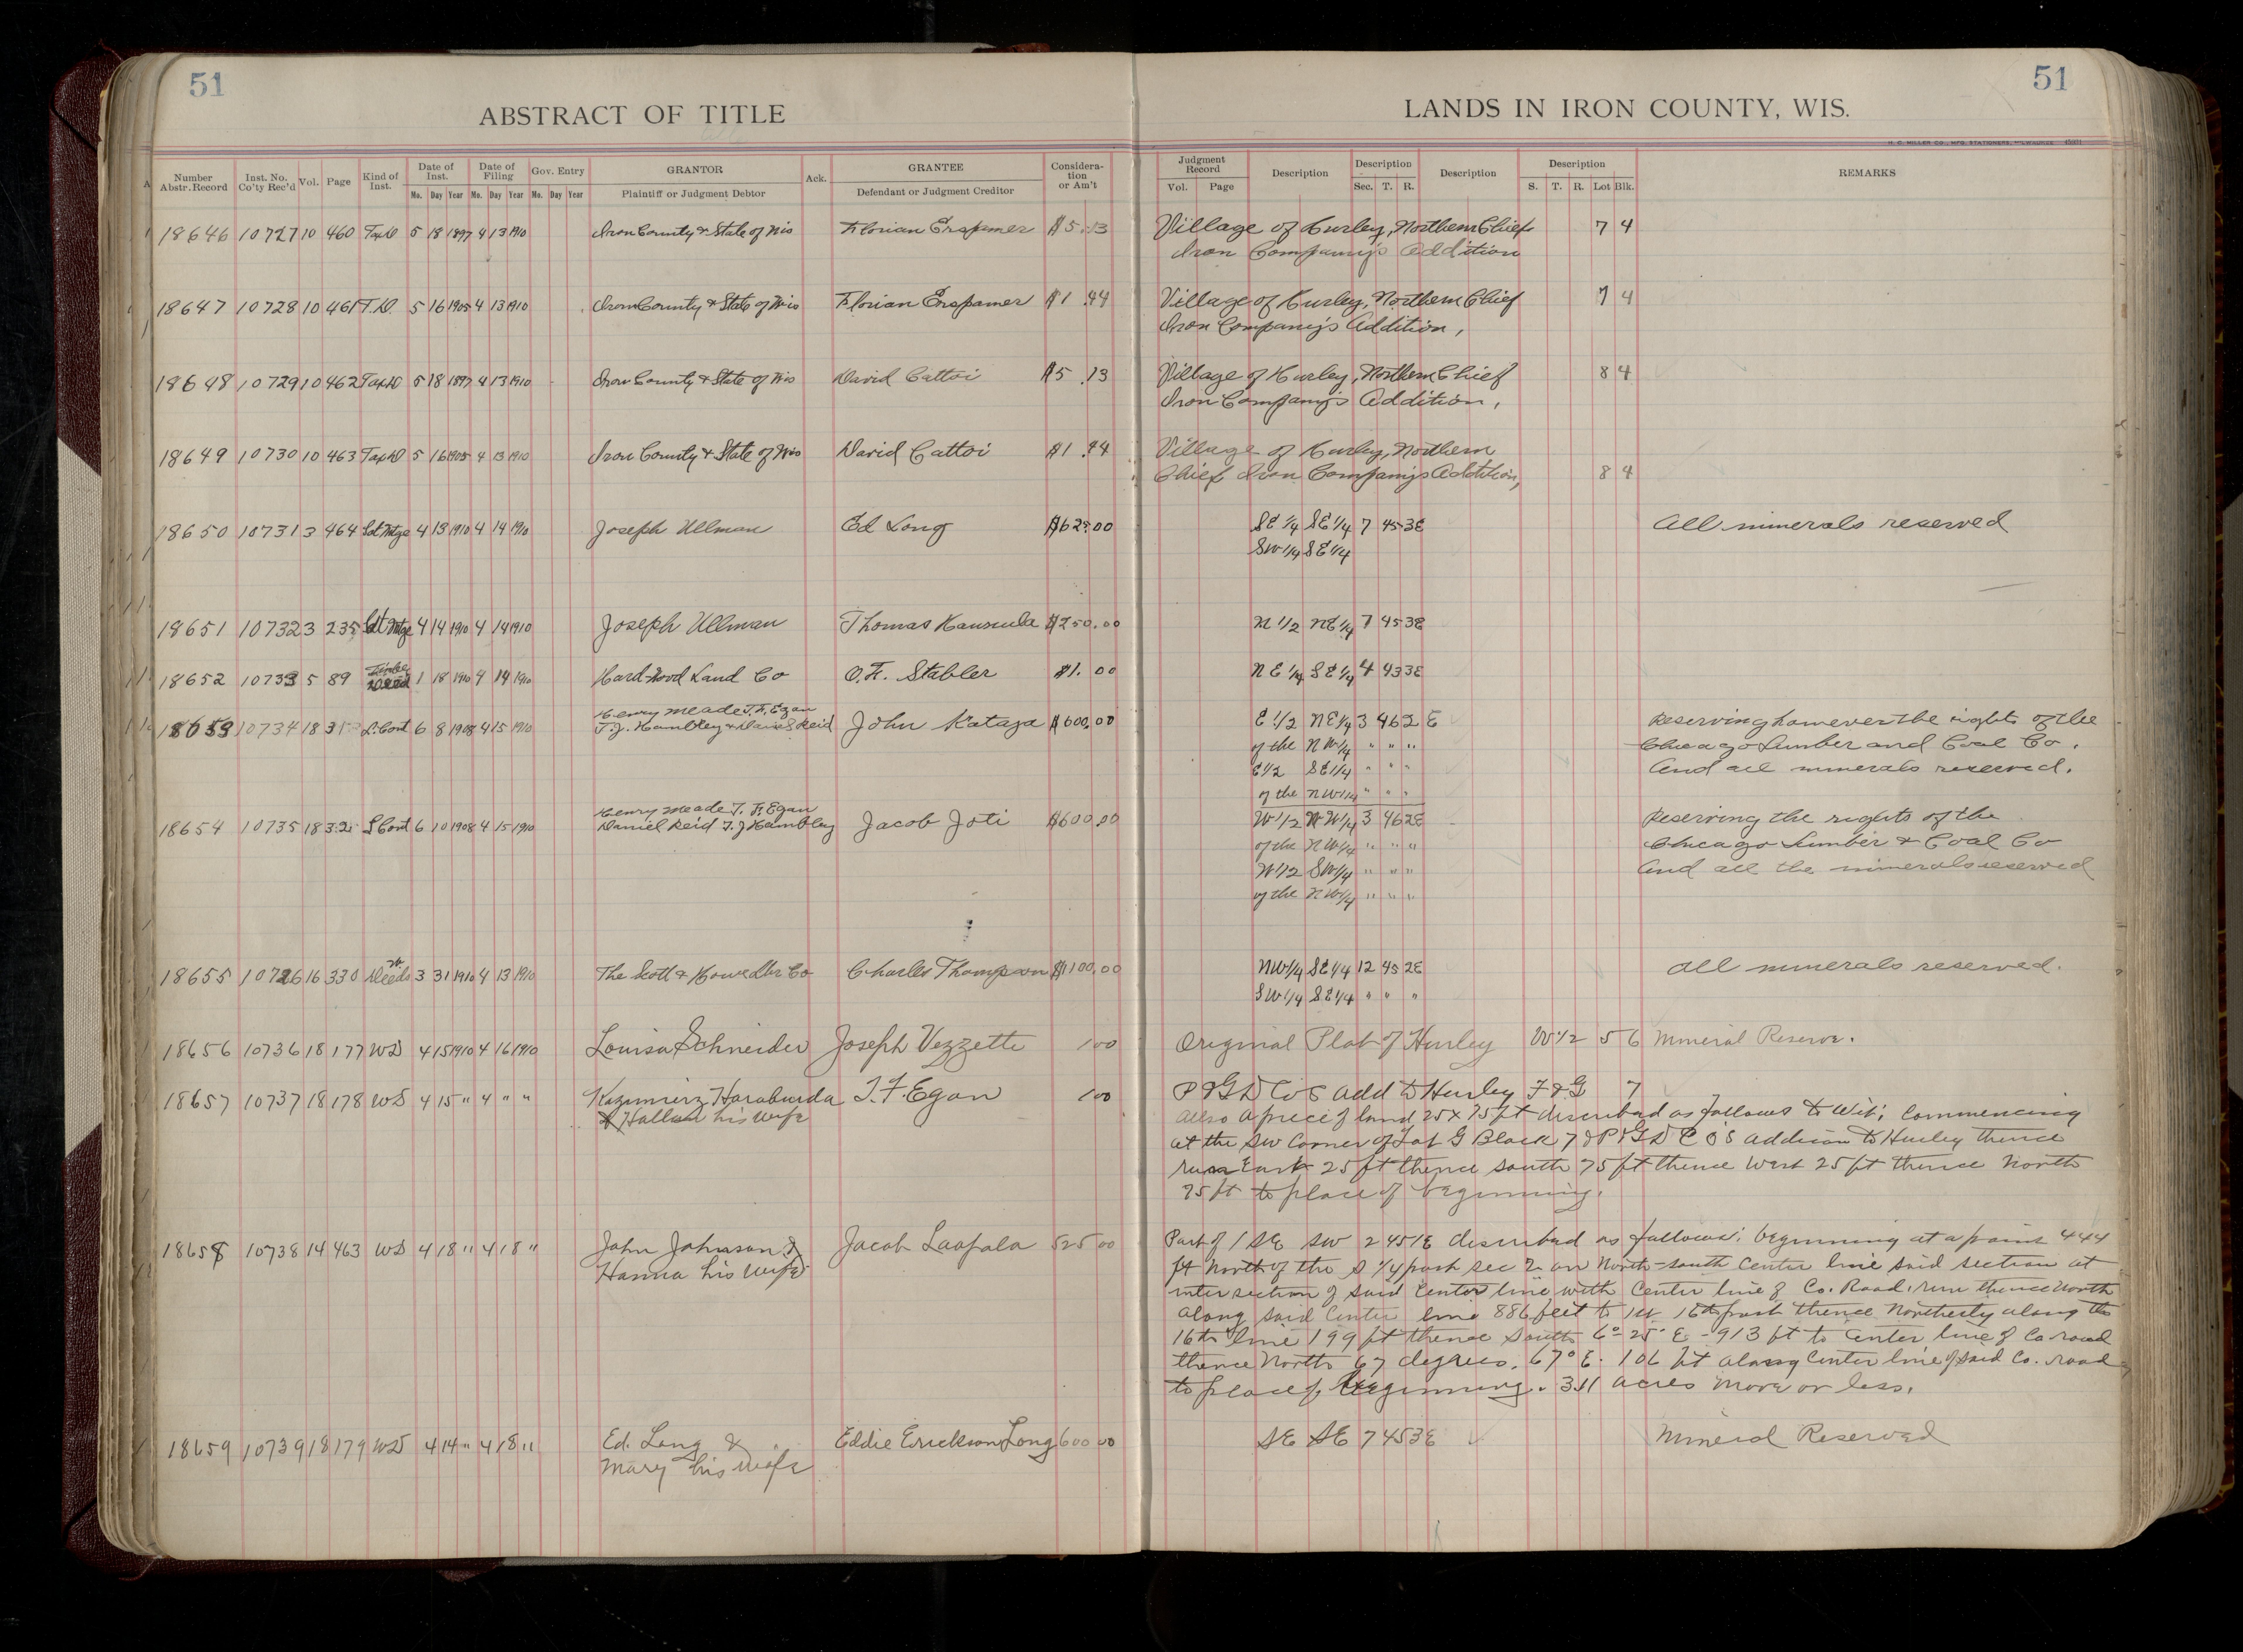 51
51
ABSTRACT OF TITLE
LANDS IN IRON COUNTY, WIS.
H. C. MILLER CO., MFG. STATIONERS, MILWAUKEE
Number Abstr. Record Inst. No. Co'ty Rec'd Vol. Page Kind of Inst. Date of Inst. Mo. Day Year Date of Filing Mo. Day Year Gov. Entry Mo. Day Year GRANTOR Plaintiff or Judgment Debtor Ack. GRANTEE Defendant or Judgment Creditor Considera-tion or Am't
Judgment Record Vol. Page Description Description Sec. T. R. Description Description S. T. R. Lot Blk. REMARKS
18646 10727 10 460 Tax D 5 18 1897 4 13 1910 Iron County & State of Wis Florian Erspamer $5.13 Village of Hurley, Northern Chief 7 4
Iron Company's Addition
18647 10728 10 461 T.D. 5 16 1905 4 13 1910 Iron County & State of Wis Florian Erspamer $1.44 Village of Hurley, Northern Chief 7 4
Iron Company's Addition,
18648 10729 10 462 Tax D 5 18 1897 4 13 1910 Iron County & State of Wis David Cattoi $5.13 Village of Hurley, Northern Chief 8 4
Iron Company's Addition,
18649 10730 10 463 Tax D 5 16 1905 4 13 1910 Iron County & State of Wis David Cattoi $1.44 Village of Hurley, Northern
Chief Iron Company's Addition, 8 4
18650 10731 3 464 Sat Mtge 4 13 1910 4 14 1910 Joseph Ullman Ed Long $625.00 SE 1/4 SE 1/4 7 45 3E All minerals reserved
SW 1/4 SE 1/4
18651 10732 3 235 Sat Mtge 4 14 1910 4 14 1910 Joseph Ullman Thomas $250.00 N 1/2 NE 1/4 7 45 3E
18652 10733 5 89 Timber Deed 1 18 1910 4 14 1910 Hard-wood Land Co O.F. Stabler $1.00 NE 1/4 SE 1/4 4 43 3E
Henry Meade T.F. Egan
18653 10734 18 L. Cont 6 8 1908 4 15 1910 T.J. Hambley & Daniel Reid John Kataja $600.00 E 1/2 NE 1/4 3 46 2 E Reserving however the rights of the
of the NW 1/4 " " " Chicago Lumber and Coal Co.
E 1/2 SE 1/4 " " " And all minerals reserved.
of the NW 1/4 " " "
Henry Meade T. F. Egan
18654 10735 18 32 L Cont 6 10 1908 4 15 1910 Daniel Reid T. J Hambley Jacob Joti $600.00 W 1/2 NW 1/4 3 46 2E Reserving the rights of the
of the NW 1/4 " " " Chicago Lumber & Coal Co
W 1/2 SW 1/4 " " " And all the minerals reserved
of the NW 1/4 " " "
18655 10726 16 330 W. Deeds 3 31 1910 4 13 1910 The Scott & Howe Lbr Co Charles Thompson $1100.00 NW 1/4 SE 1/4 12 45 2E All minerals reserved.
SW 1/4 SE 1/4 " " "
18656 10736 18 177 WD 4 15 1910 4 16 1910 Louisa Schneider Joseph Vezzetti 1 00 Original Plat of Hurley W 1/2 5 6 Mineral Reserve.
18657 10737 18 178 WD 4 15 " 4 " " Kazimierz Haraburda T. F. Egan 1 00 P & G D Co's Add to Hurley F & G 7
& his wife Also a piece of land 25 x 75 ft described as follows to wit; Commencing
at the SW Corner of Lot G Block 7 of P & G D Co's addition to Hurley thence
run East 25 ft thence south 75 ft thence West 25 ft thence North
75 ft to place of beginning.
18658 10738 14 463 WD 4 18 " 4 18 " John Johnson & Jacob Laapala 525 00 Part of 1 SE SW 2 45 1E described as follows: beginning at a point 444
Hanna his wife ft North of the S 1/4 post sec 2 on North-south center line said section at
intersection of said center line with center line of Co. Road; run thence North
along said center line 886 feet to 16th post thence Northerly along the
16th line 199 ft thence South 6° 25' E - 913 ft to center line of Co road
thence North 67 degrees. 67° E. 106 ft along center line of said Co. road
to place of beginning. 3.11 acres more or less.
18659 10739 18 179 WD 4 14 " 4 18 " Ed. Long & Eddie Erickson Long 600 00 SE SE 7 45 3E Mineral Reserved
Mary his wife